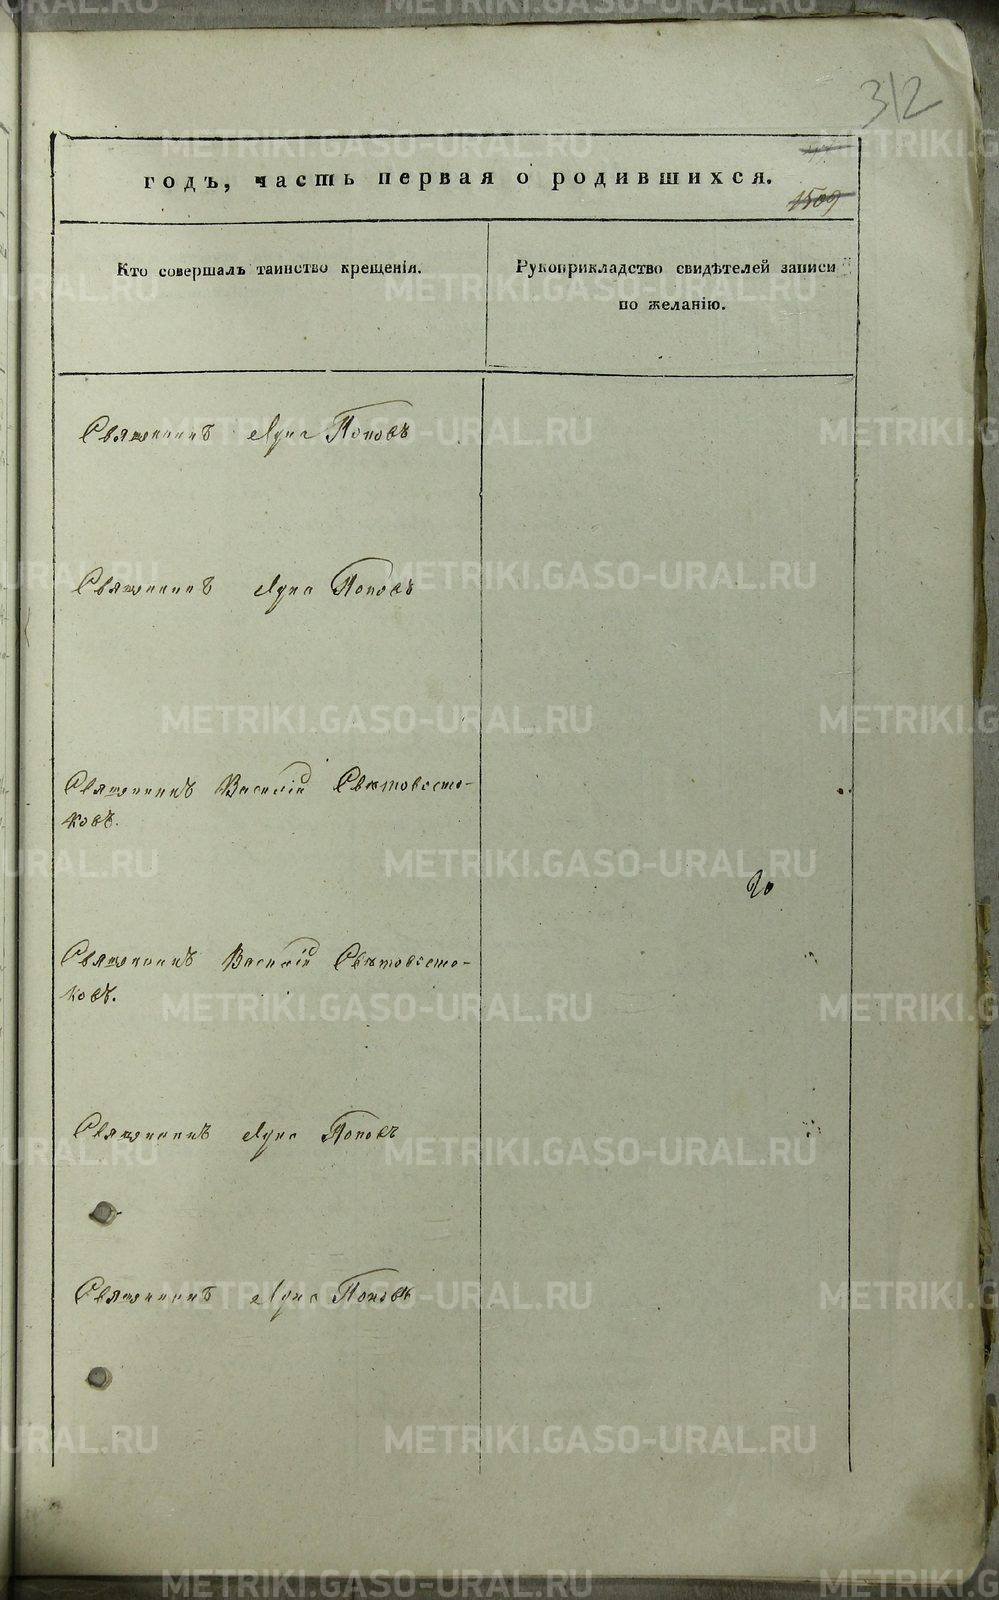 312
1509
годъ, часть первая о родившихся.
Кто совершалъ таинство крещенія.
Рукоприкладство свидѣтелей записи
по желанію.
Священникъ Лука Поповъ
Священникъ Лука Поповъ
Священникъ Василій Свѣтовосто-
ковъ.
Священникъ Василій Свѣтовосто-
ковъ.
Священникъ Лука Поповъ
Священникъ Лука Поповъ
METRIKI.GASO-URAL.RU